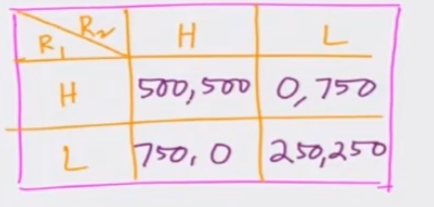 R₁ R₂ H L
H 500,500 0,750
L 750,0 250,250